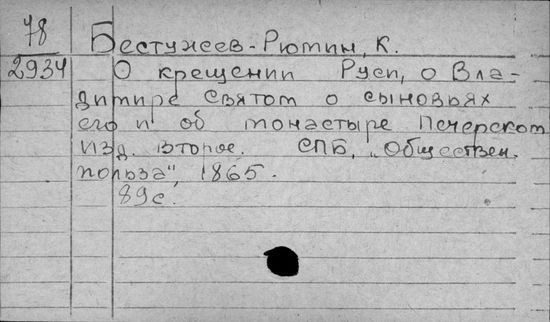 78
2934
Бестужев-Рюмин, К.
О крещении Руси, о Вла-
димире святом о сыновьях
его и об монастыре Печерском
изд. второе. СПБ, „Обществен.
польза", 1865.
89с.